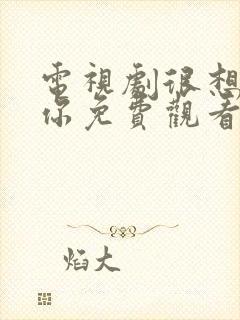 電視劇很想
你免費觀看
焰大